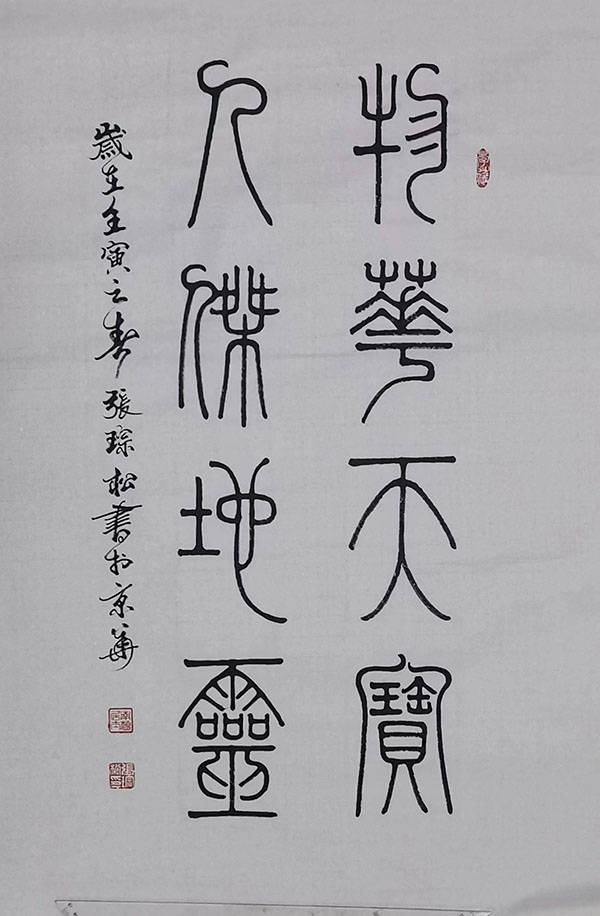 物華天寶
人傑地靈
歲在壬寅之春張琮松書於京華